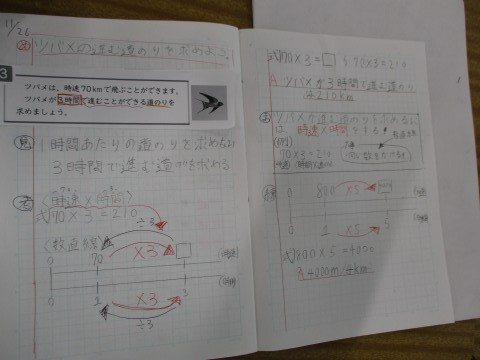 11/26
め ツバメの進む道のりを求めよう。
3
ツバメは、時速70kmで飛ぶことができます。
ツバメが3時間で進むことができる道のりを
求めましょう。
見 1時間あたりの道のりを求めたい
3時間で進む道のりを求める
考 〈時速×時間〉
式)70×3=210
÷3
〈数直線〉
×3
0 70 □ (道のり)
0 1 3 (時間)
×3
÷3
式)70×3=□ 70×3=210
A.ツバメが3時間で進む道のり
は210km
ま ツバメが進む道のりを求めるに
は、時速×時間をする。
(例)
70×3=210
0 800 ×5
0 1 ×5 5
式)800×5=4000
A.4000m/4km